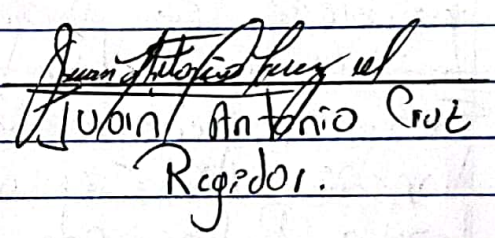 Juan Antonio Cruz
Juain Antonio Cruz
Regidor.